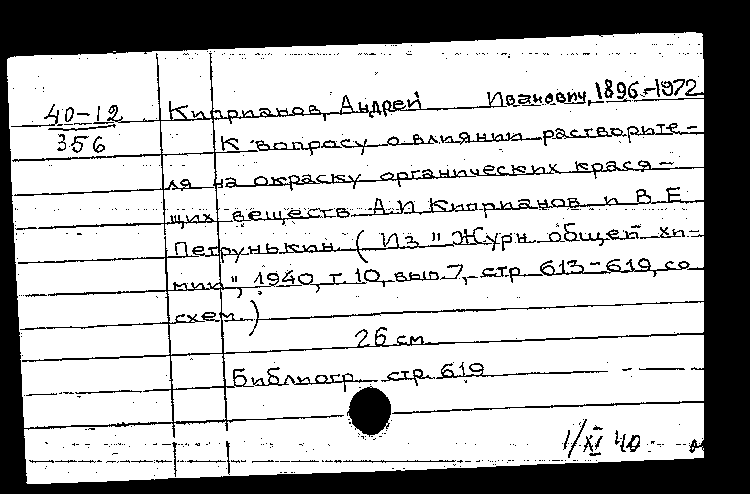 40-12
356
Киприанов, Андрей Иванович, 1896-1972
К вопросу о влиянии растворите-
ля на окраску органических крася-
щих веществ. А.И. Киприанов и В.Е.
Петрунькин. (Из "Журн. общей хи-
мии", 1940, т. 10, вып. 7, стр. 613-619, со
схем.)
26 см.
Библиогр. стр. 619
1/XI 40